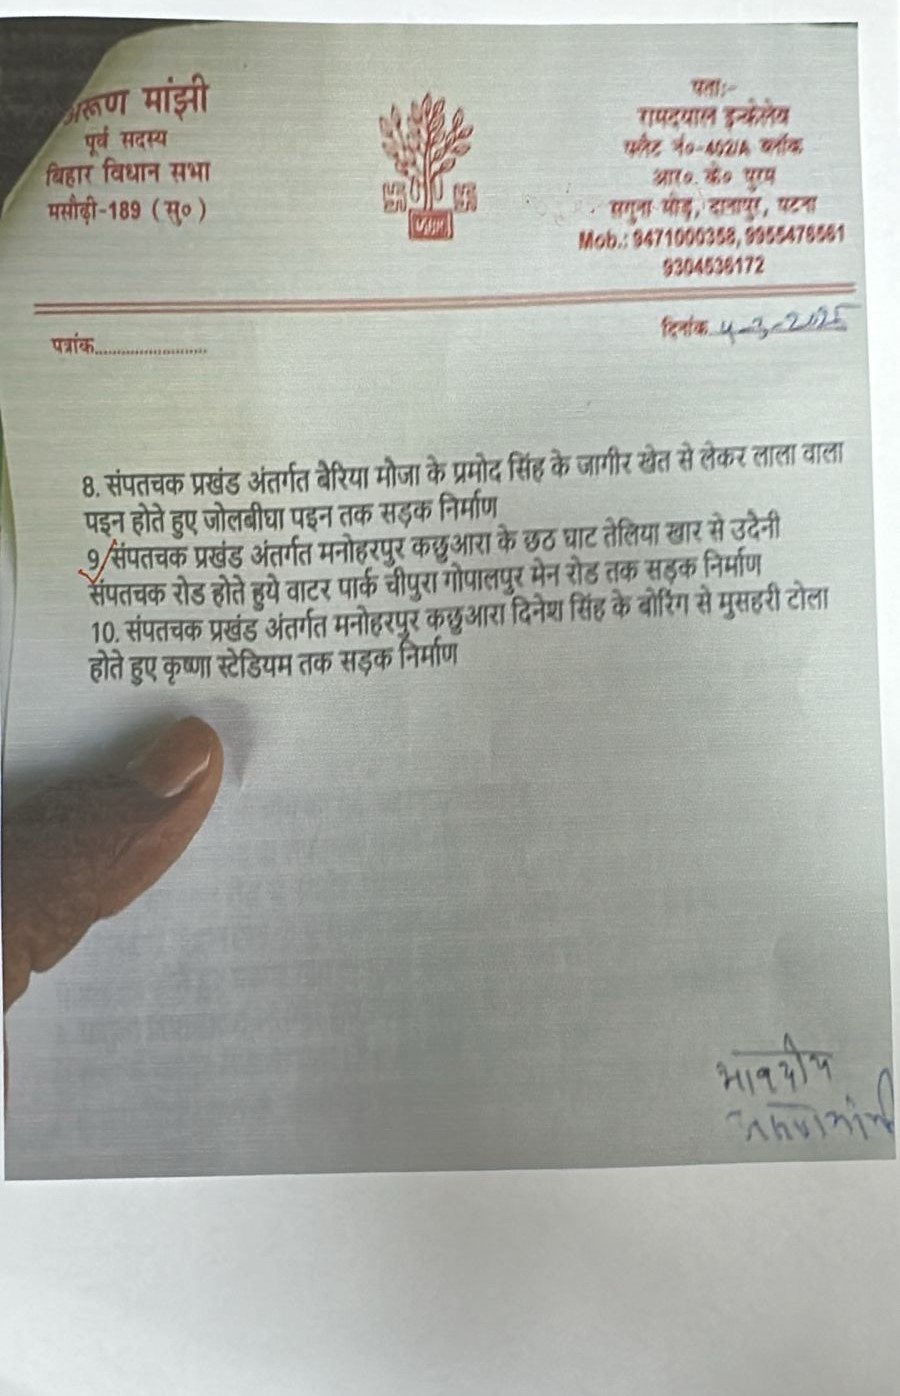 अरूण मांझी
पूर्व सदस्य
बिहार विधान सभा
मसौढ़ी-189 (सु०)
पता:-
रामदयाल इन्कलेव
फ्लैट नं०-402/A ब्लॉक
आर० के० पुरम
सगुना मोड़, दानापुर, पटना
Mob.: 9471000358, 9955476561
9304536172
पत्रांक........................
दिनांक 4-3-2025
8. संपतचक प्रखंड अंतर्गत बैरिया मौजा के प्रमोद सिंह के जागीर खेत से लेकर लाला वाला
पइन होते हुए जोलबीघा पइन तक सड़क निर्माण
9/संपतचक प्रखंड अंतर्गत मनोहरपुर कछुआरा के छठ घाट तेलिया खार से उदैनी
संपतचक रोड होते हुये वाटर पार्क चीपुरा गोपालपुर मेन रोड तक सड़क निर्माण
10. संपतचक प्रखंड अंतर्गत मनोहरपुर कछुआरा दिनेश सिंह के बोरिंग से मुसहरी टोला
होते हुए कृष्णा स्टेडियम तक सड़क निर्माण
भावदीय